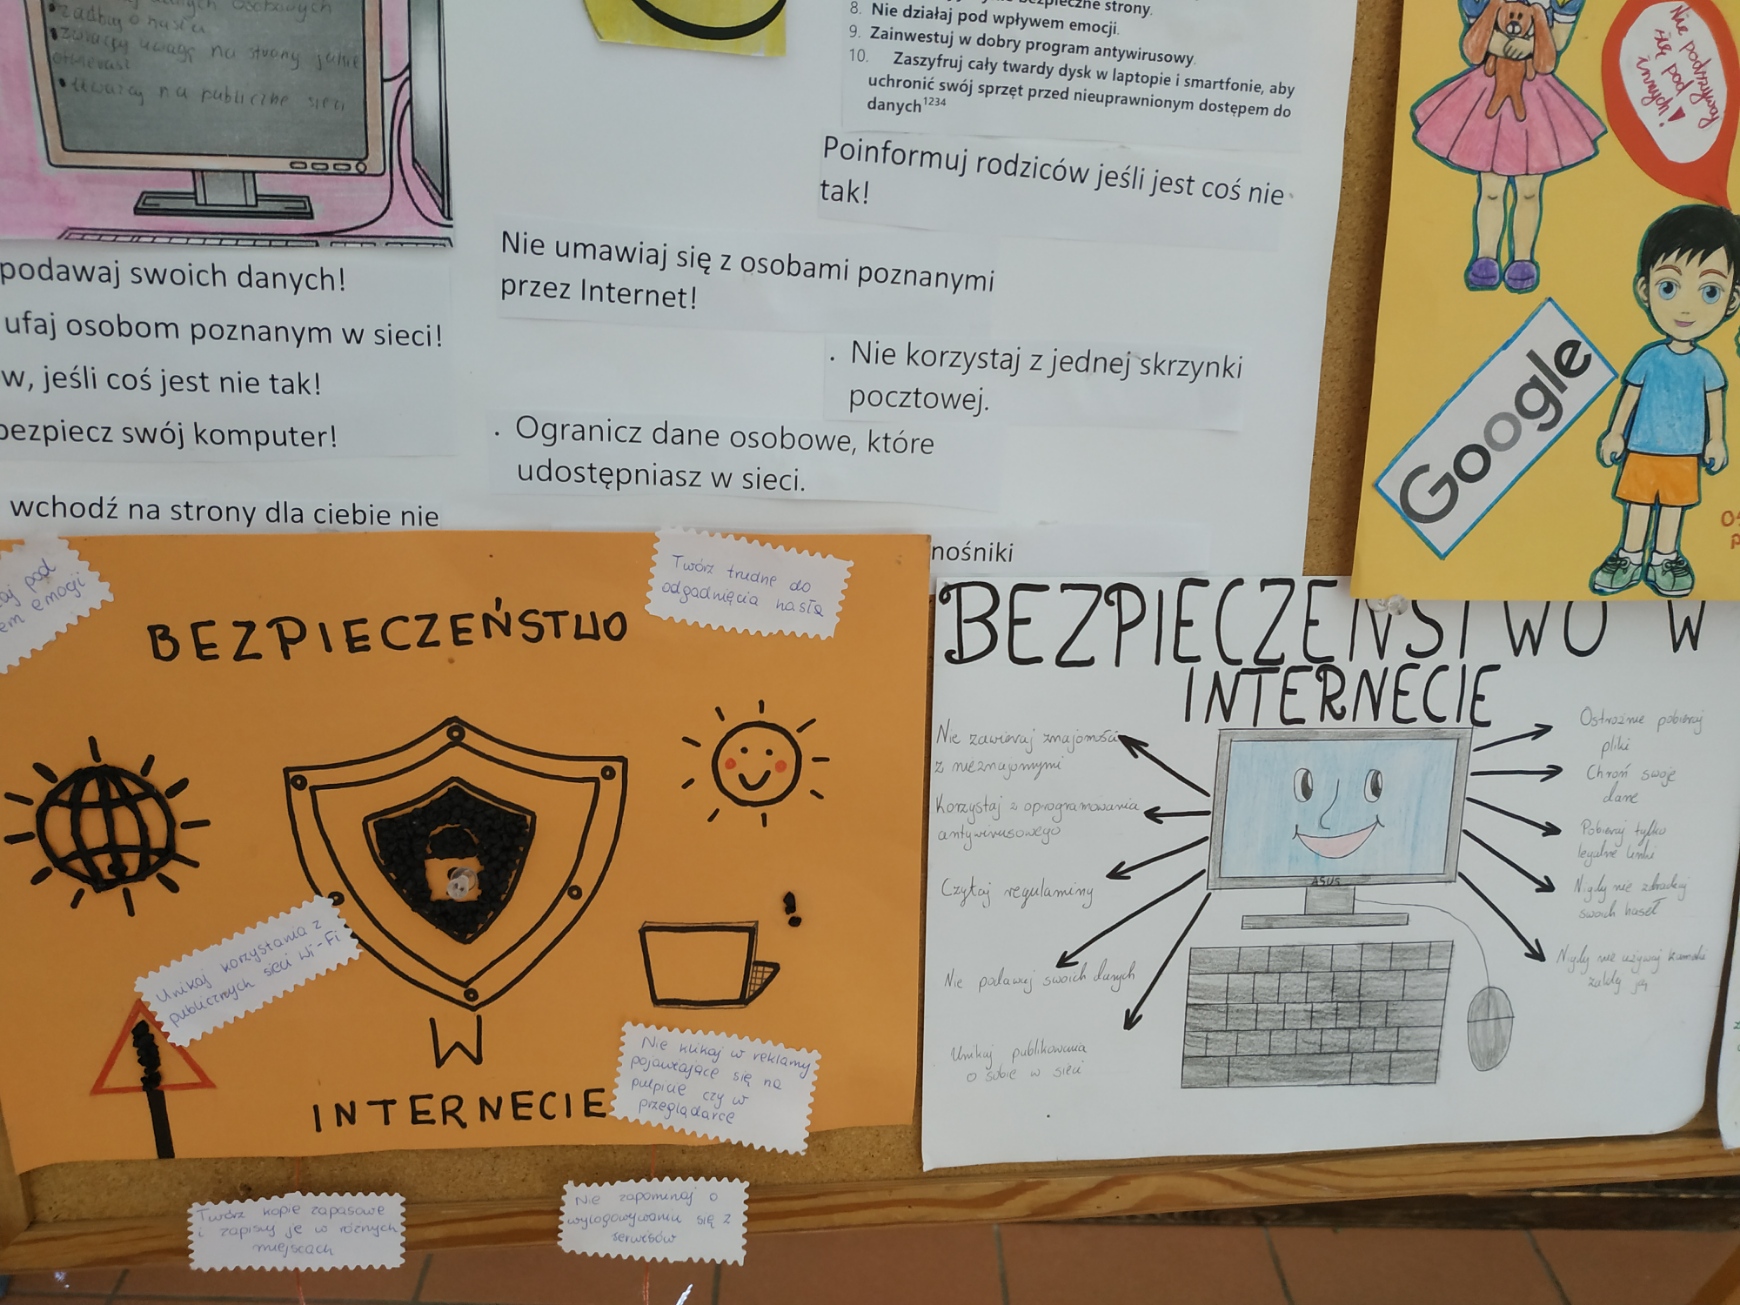 osobowych
•zadbaj o hasła
•zwracaj uwagę na strony jakie
otwierasz
•uważaj na publiczne sieci
podawaj swoich danych!
ufaj osobom poznanym w sieci!
w, jeśli coś jest nie tak!
bezpiecz swój komputer!
wchodź na strony dla ciebie nie
strony.
8. Nie działaj pod wpływem emocji.
9. Zainwestuj w dobry program antywirusowy.
10. Zaszyfruj cały twardy dysk w laptopie i smartfonie, aby
uchronić swój sprzęt przed nieuprawnionym dostępem do
danych1234
Poinformuj rodziców jeśli jest coś nie
tak!
Nie umawiaj się z osobami poznanymi
przez Internet!
. Nie korzystaj z jednej skrzynki
pocztowej.
. Ogranicz dane osobowe, które
udostępniasz w sieci.
nośniki
Nie podszywaj
się pod
innych!
Google
pod
emocji
Twórz trudne do
odgadnięcia hasła
BEZPIECZEŃSTWO
Unikaj korzystania z
publicznych sieci Wi-Fi
W
INTERNECIE
Nie klikaj w reklamy
pojawiające się na
pulpicie czy w
przeglądarce
Twórz kopie zapasowe
i zapisuj je w różnych
miejscach
Nie zapominaj o
wylogowywaniu się z
serwisów
BEZPIECZEŃSTWO W
INTERNECIE
Nie zawieraj znajomości
z nieznajomymi
Korzystaj z oprogramowania
antywirusowego
Czytaj regulaminy
Nie podawaj swoich danych
Unikaj publikowania
o sobie w sieci
ASUS
Ostrożnie pobieraj
pliki
Chroń swoje
dane
Pobieraj tylko
legalne linki
Nigdy nie zdradzaj
swoich haseł
Nigdy nie używaj kamerki